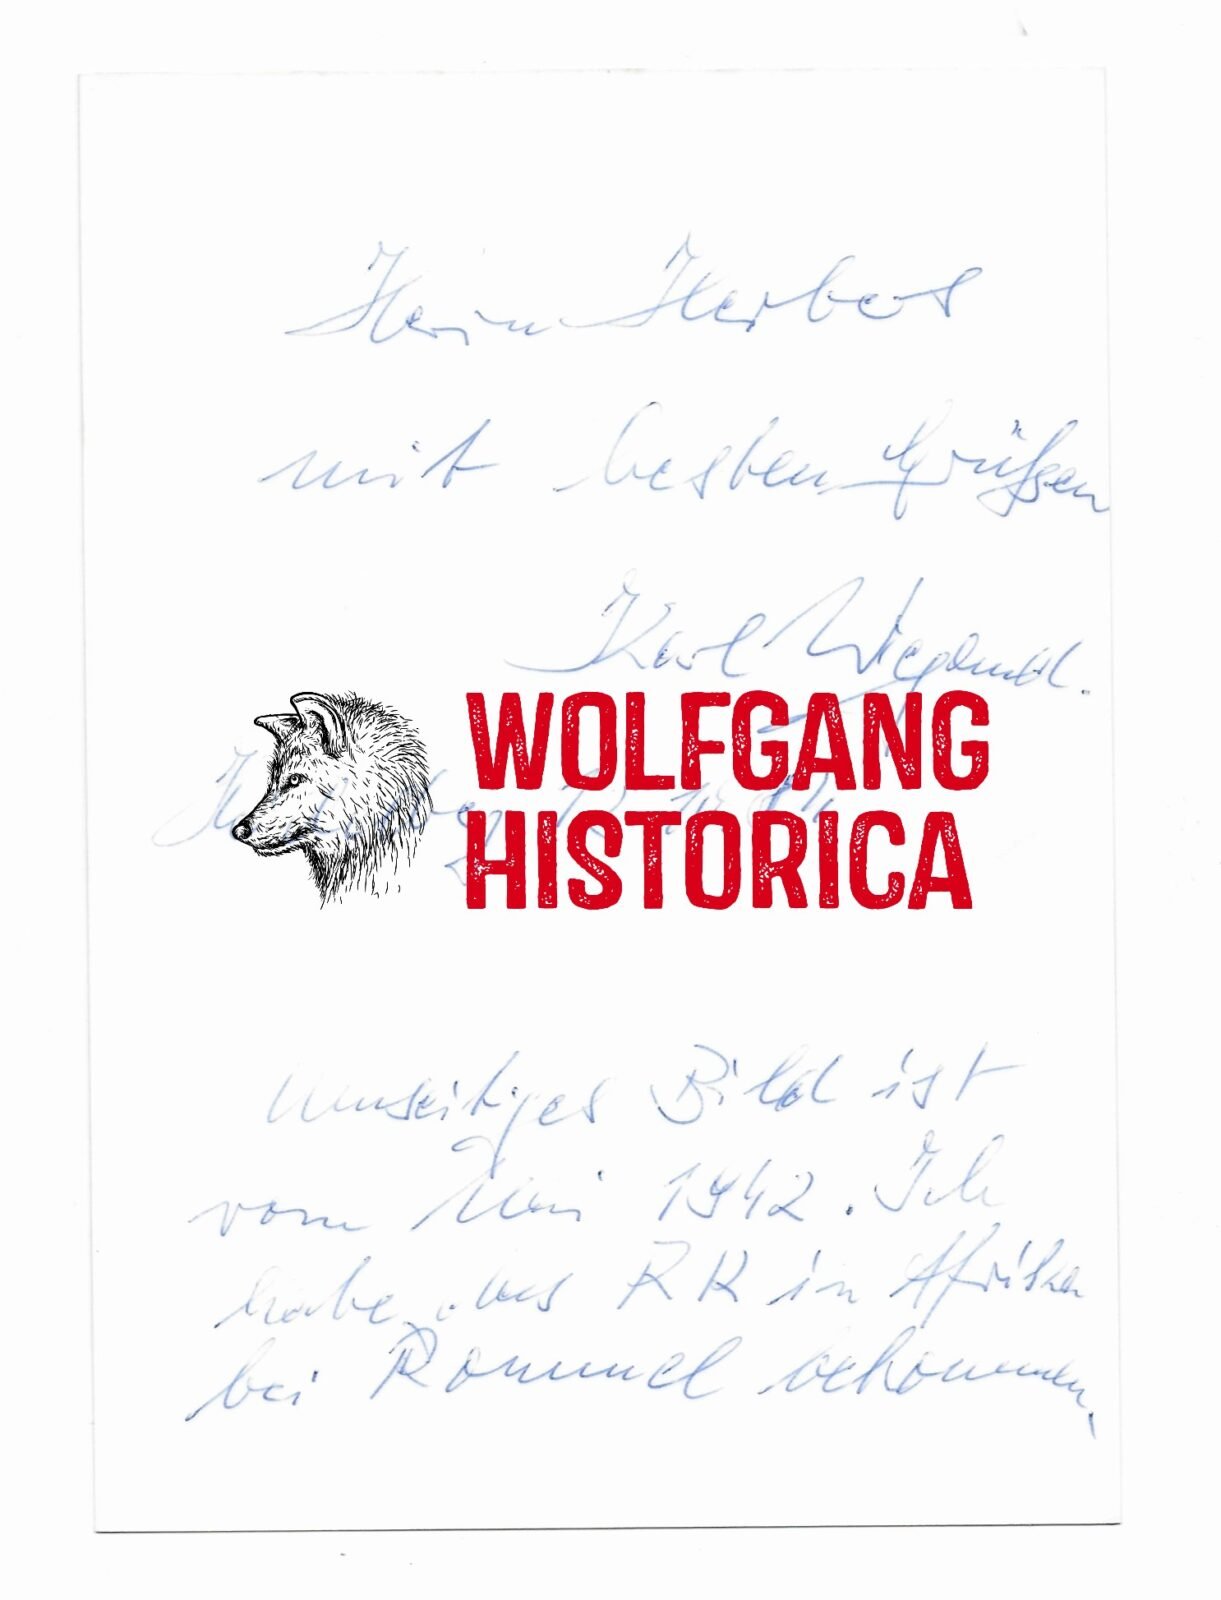 Herrn Herbert
mit besten Grüßen
Karl Wiegand.
WOLFGANG
HISTORICA
Umseitiges Bild ist
vom Mai 1942. Ich
habe das RK in Afrika
bei Rommel bekommen.